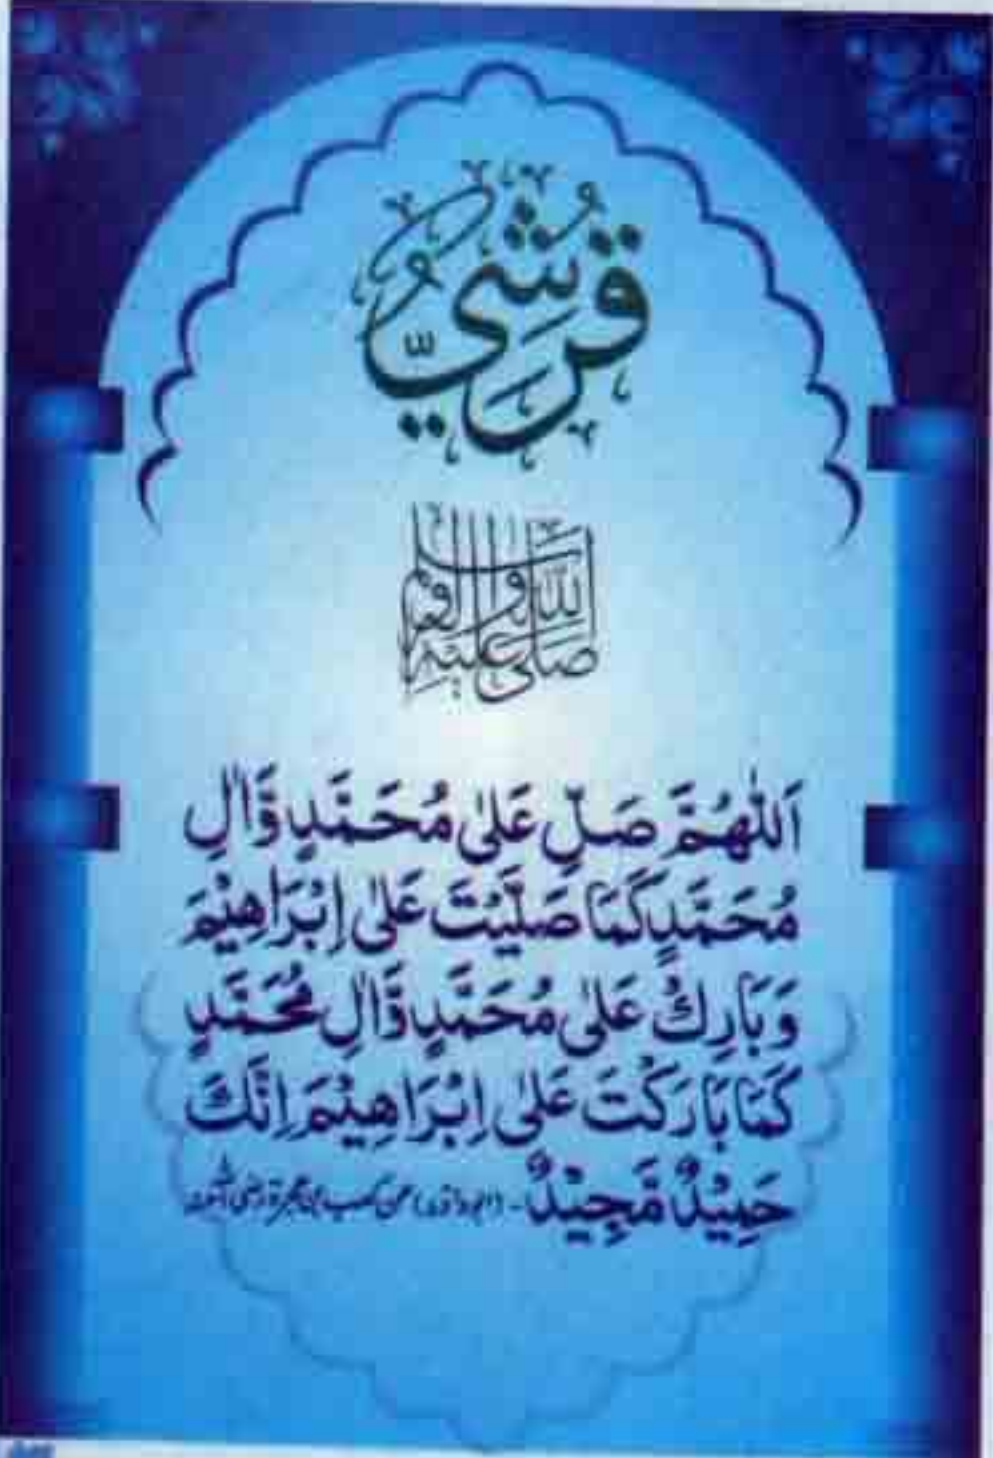 قُرَشِيٌّ
صَلَّى اللّٰهُ عَلَيْهِ وَآلِهٖ وَسَلَّمَ
اَللّٰهُمَّ صَلِّ عَلٰى مُحَمَّدٍ وَّاٰلِ
مُحَمَّدٍ كَمَا صَلَّيْتَ عَلٰى اِبْرَاهِيْمَ
وَبَارِكْ عَلٰى مُحَمَّدٍ وَّاٰلِ مُحَمَّدٍ
كَمَا بَارَكْتَ عَلٰى اِبْرَاهِيْمَ اِنَّكَ
حَمِيْدٌ مَّجِيْدٌ - (ابوداؤد) عن کعب بن عجرة رضی اللہ عنہ